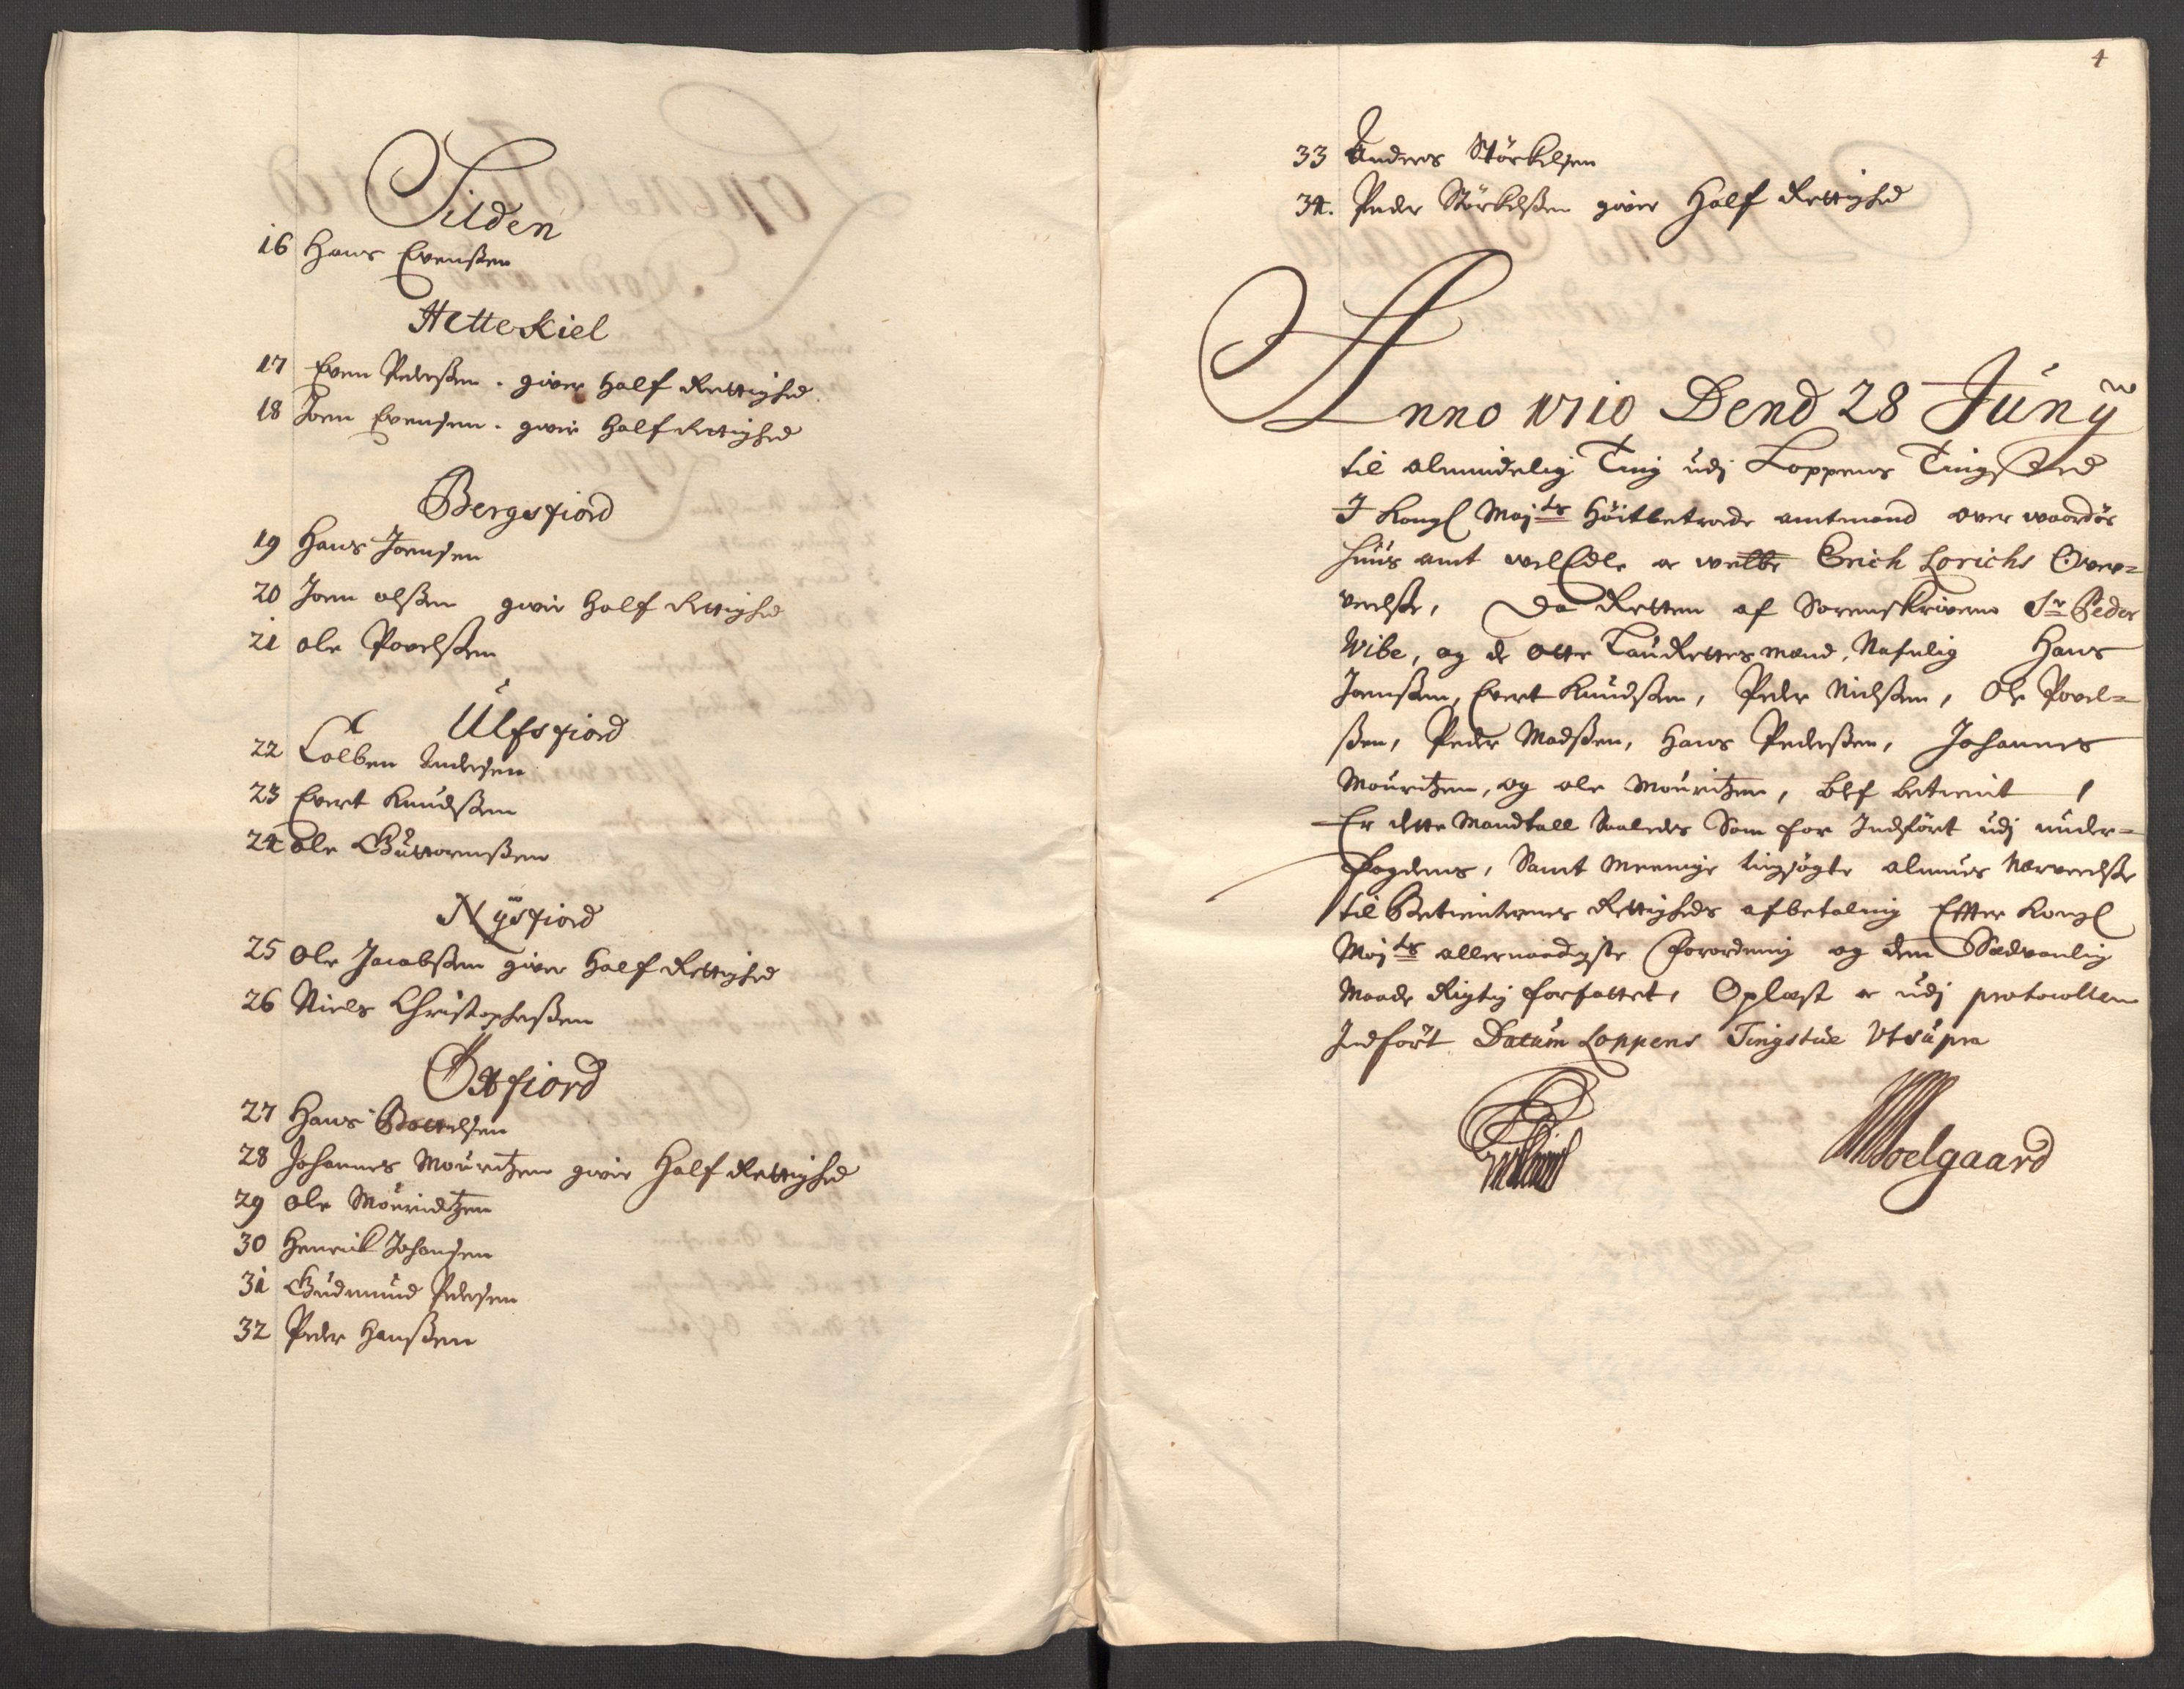 Silden
16 Hans Evenßen
Hetteskiel
17 Even Pederßen. giver half Rettighed.
18 Joen Evensen. giver half Rettighed
Bergsfiord
19 Hans Joensen
20 Joen olßen giver half Rettighed
21 ole Povelßen
Ulfsfiord
22 Colben Andersen
23 Evert Knudßen
24 ole Guttormßen
Nÿsfiord
25 Ole Jacobßen giver half Rettighed
26 Niels Christopherßen
Öxfiord
27 Hans Bottelsen
28 Johannes Mouritzen giver Half Rettighed
29 ole Mouridtzen
30 Henrich Johansen
31 Gudmund Pedersen
32 Peder Hanßen
4
33 Anders Störkelsen
34. Peder Störkelßen giver Half Rettighed
Anno 1710 Dend 28 Junÿ
til almindelig Ting udj Loppens Tingsted
I Kongl Majts Höitbetroede amtmand over waardøe
huus amt velEdle oc velbr Erich Lorichs Over=
verelße, Da Retten af Sorenskriveren Sr Peder
Wibe, og de otte LaugRettes mænd, Nafnlig Hans
Joenßen, Evert Knudßen, Peder Nielßen, Ole Povel=
ßen, Peder Madßen, Hans Pederßen, Johannes
Mouritzen, og ole Mouritzen, blef betient,
Er dette Mandtall Saaledes Som for Indfört udj under=
fogdens, Samt Meenige tingsøgte almues Nærverelße
til Betienternes Rettigheds afbetaling Efter Kongl
Majts allernaadigste forordning og dend Sædvanlig
Maade Rigtig forfattet, Oplæst oc udj protocollen
Indfört Datum Loppens Tingstue Ut supra
Soelgaard